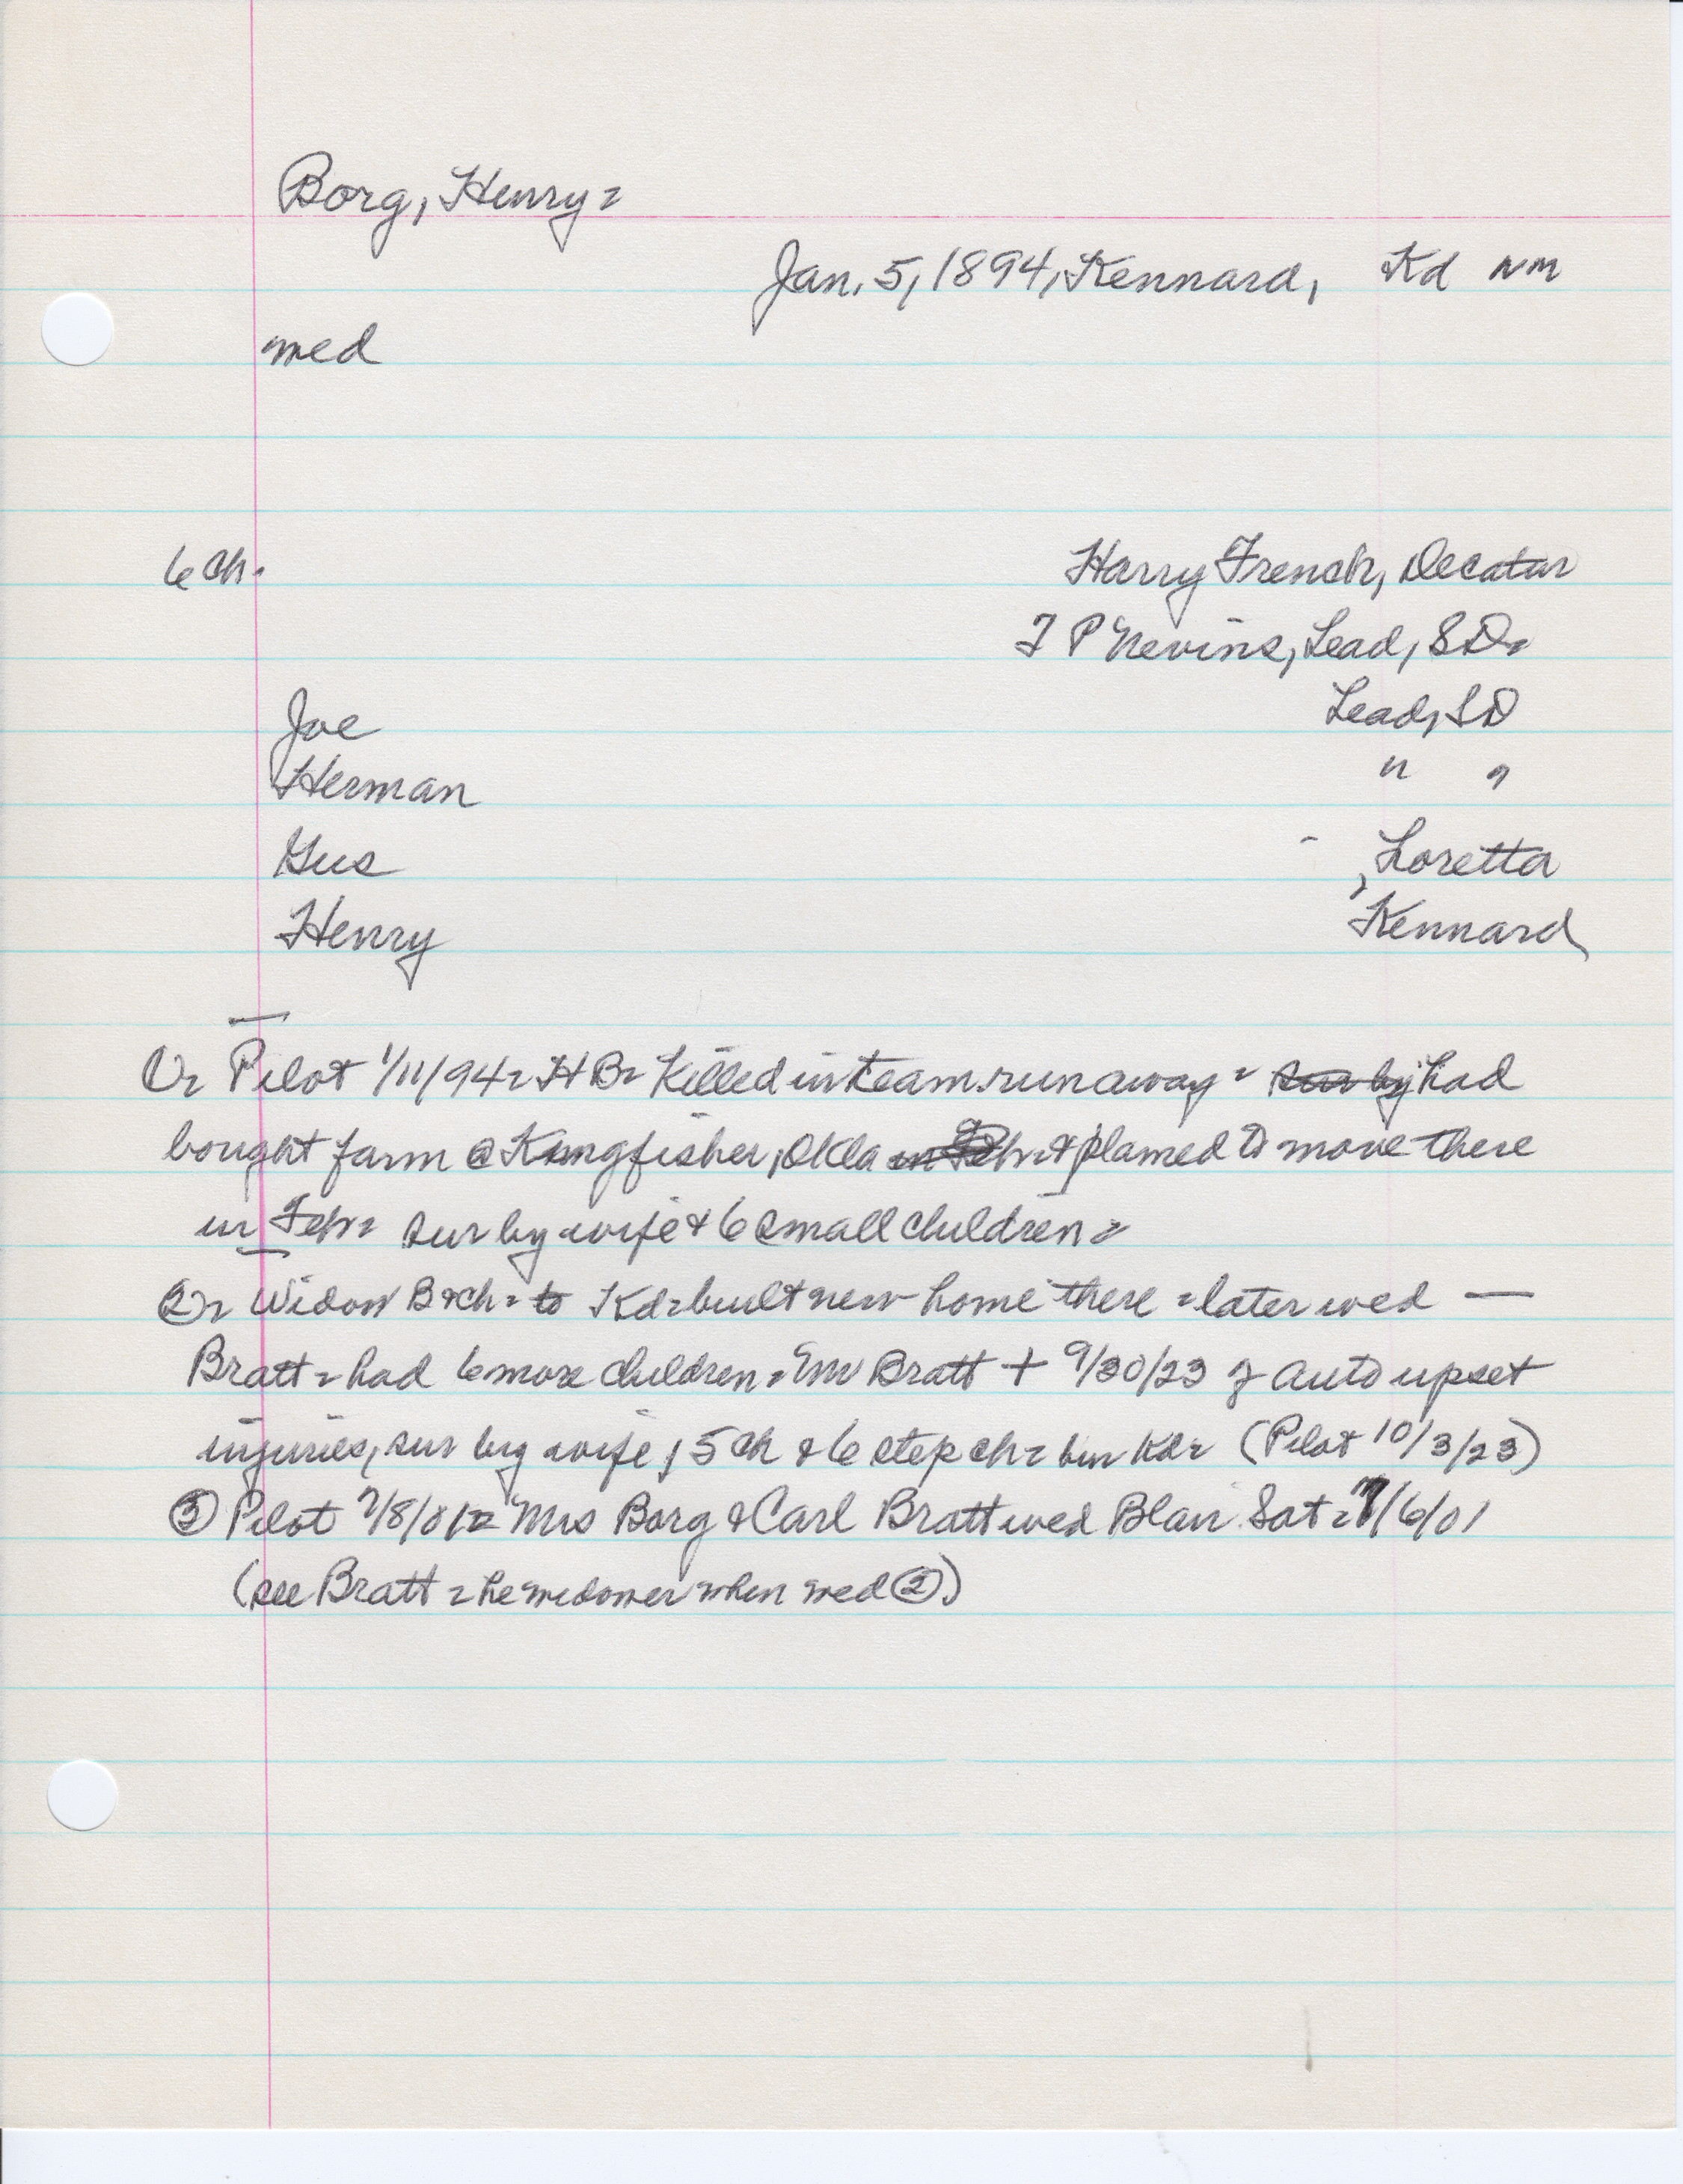 Borg, Henry =
Jan. 5, 1894, Kennard, Kd NM
med
6 Ch.
Harry French, Decatur
T P Nevins, Lead, S D =
Joe Lead, S D
Herman " "
Gus - , Loretta
Henry Kennard
① = Pilot 1/11/94 = H B = Killed in team runaway = sur by had
bought farm @ Kingfisher, Okla in Feb = & planned to move there
in Feb = sur by wife & 6 small children =
② = Widow B & ch = to Kd = built new home there = later wed —
Bratt = had 6 more children = Mr Bratt + 9/30/23 of auto upset
injuries, sur by wife, 5 ch & 6 step ch = bur Kd = (Pilot 10/3/23)
③ Pilot 7/8/01 = Mrs Borg & Carl Bratt wed Blair Sat = 7/6/01
(see Bratt = he widower when med ②)